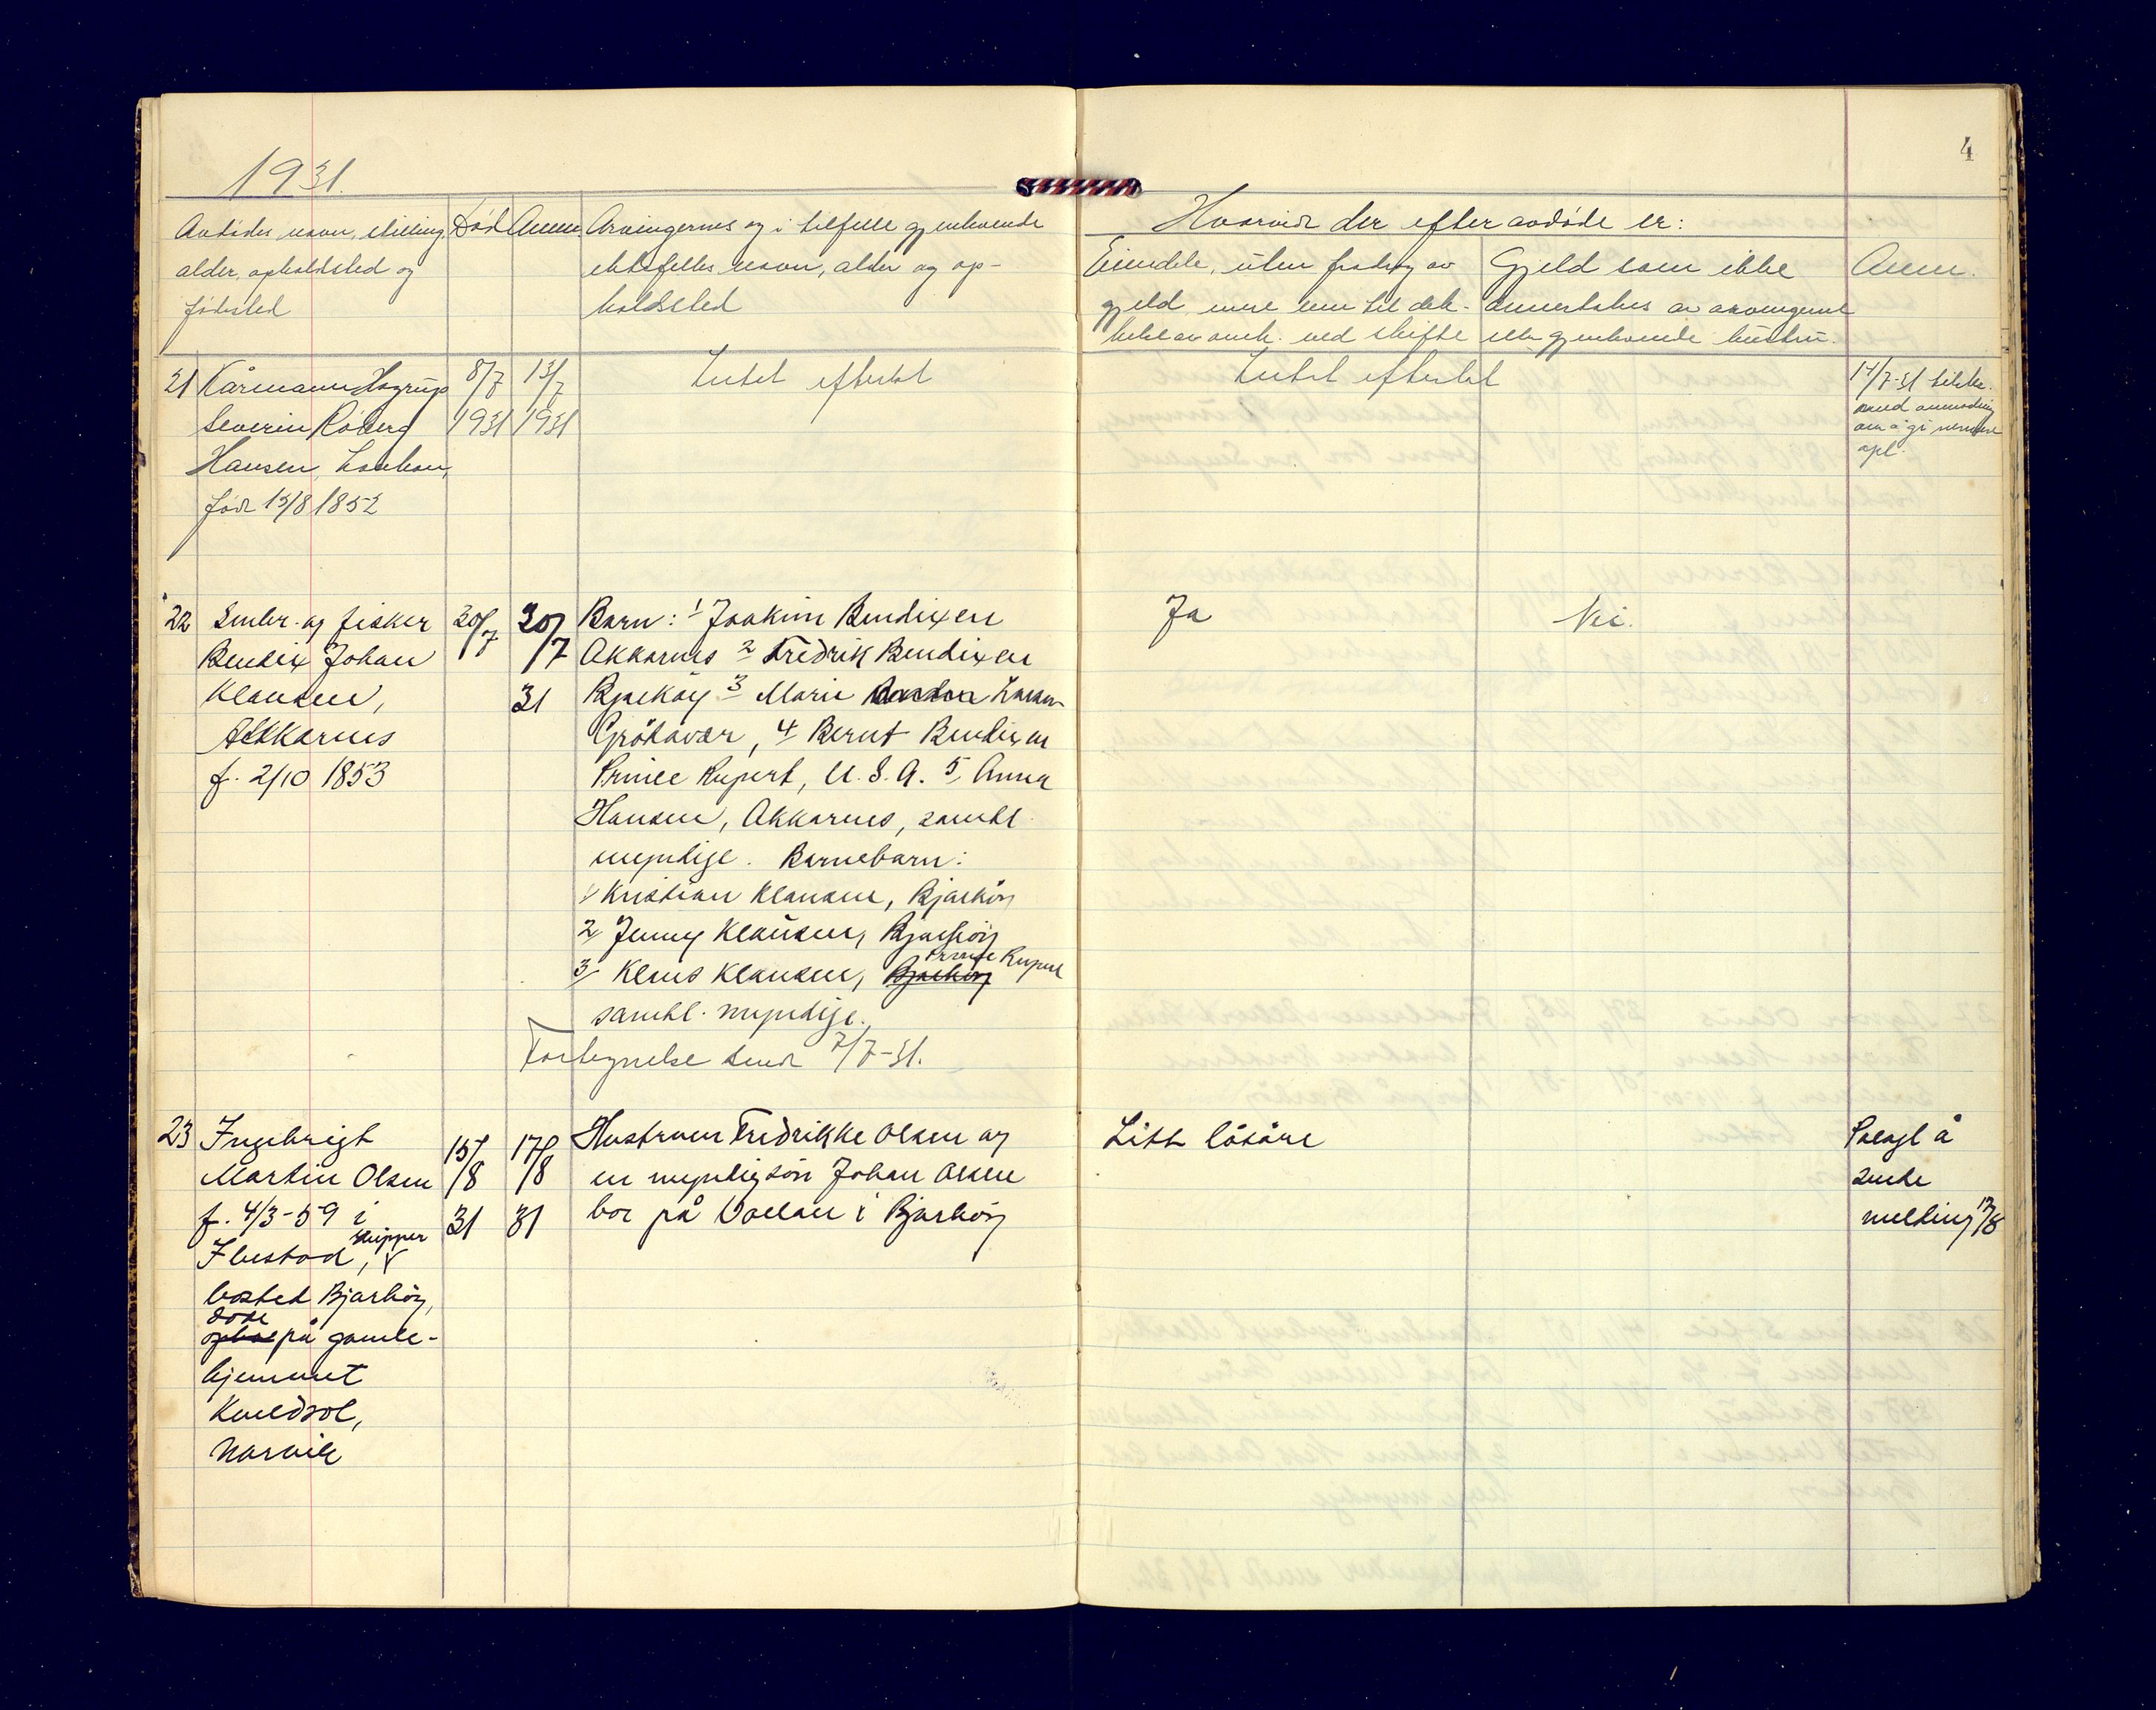 1931.
4
Avdødes navn, stilling, alder, opholdsted og fødested
Død
Anm.
Arvingernes og i tilfelle gjenlevende
ektefelles navn, alder og op-
holdssted
Hvorvidt der efter avdøde er:
Eiendele, uten fradrag av
gjeld, mere enn til dek-
Gjeld som ikke
overtakes av arvingerne
ved skifte
eller gjenlevende hustru.
Anm.
21
Kårmann Hagrup
Severin Roberg
Hansen,
født 13/8 1852
8/7
1931
13/7
1931
Intet efterlatt
Intet efterlatt
14/7-31
med anmodning
om å gi nærmere
opl.
22
Småbr. og fisker
Bendix Johan
Klausen,
Akkarnes
f. 2/10 1853
20/7
20/7
31
Barn: 1 Joakim Bendixen
Akkarnes 2 Fredrik Bendixen
Bjarköy 3 Marie Larsen
Grötavær, 4 Bernt Bendixen
Prince Rupert, U.S.A. 5, Anna
Hansen, Akkarnes, samtl.
myndige. Barnebarn:
1/ Kristian Klausen, Bjarköy
2/ Jenny Klausen, Bjarköy
Prince Rupert
3/ Klaus Klausen, Bjarköy
samtl. myndige.
Ja
Nei.
sendt 7/7-31.
23
Ingebrigt
Martin Olsen
f. 4/3-59 i
skipper
Ibestad, v
bosted Bjarköy,
døde
på gamle-
hjemmet
Kveldsol,
Narvik
15/8
31
17/8
31
Hustruen Fredrikke Olsen og
en myndig sön Johan Olsen
bor på Vollan i Bjarköy
Litt lösöre
Pålagt å
sende
melding 17/8